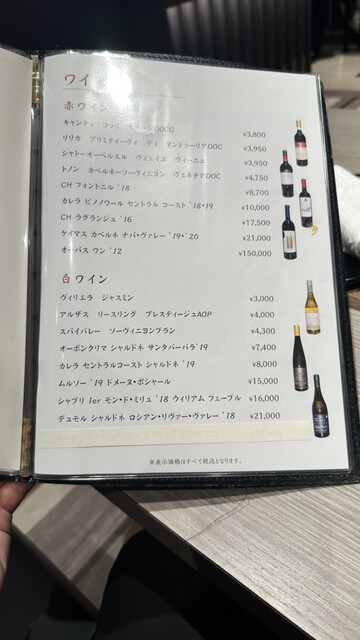 ワイ
赤ワイン
キャンティ コッリ DOCG ¥3,800
リリカ プリミティーヴォ ディ マンドゥーリアDOC ¥3,950
シャトーオーベルエル ヴィエイユ ヴィーニュ ¥3,950
トノン カベルネ・ソーヴィニヨン ヴェネチアDOC ¥4,750
CH フォントニル '18 ¥8,700
カレラ ピノノワール セントラル コースト '18・19 ¥10,000
CH ラグランジュ '16 ¥17,500
ケイマス カベルネ ナパ・ヴァレー '19・'20 ¥21,000
オーパス ワン '12 ¥150,000
白ワイン
ヴィリエラ ジャスミン ¥3,000
アルザス リースリング プレスティージュAOP ¥4,000
スパイバレー ソーヴィニヨンブラン ¥4,300
オーボンクリマ シャルドネ サンタバーバラ '19 ¥7,400
カレラ セントラルコースト シャルドネ '19 ¥8,000
ムルソー '19 ドメーヌ・ポシャール ¥15,000
シャブリ 1er モン・ド・ミリュ '18 ウィリアム フェーブル ¥16,000
デュモル シャルドネ ロシアン・リヴァー・ヴァレー '18 ¥21,000
※表示価格はすべて税込となります。